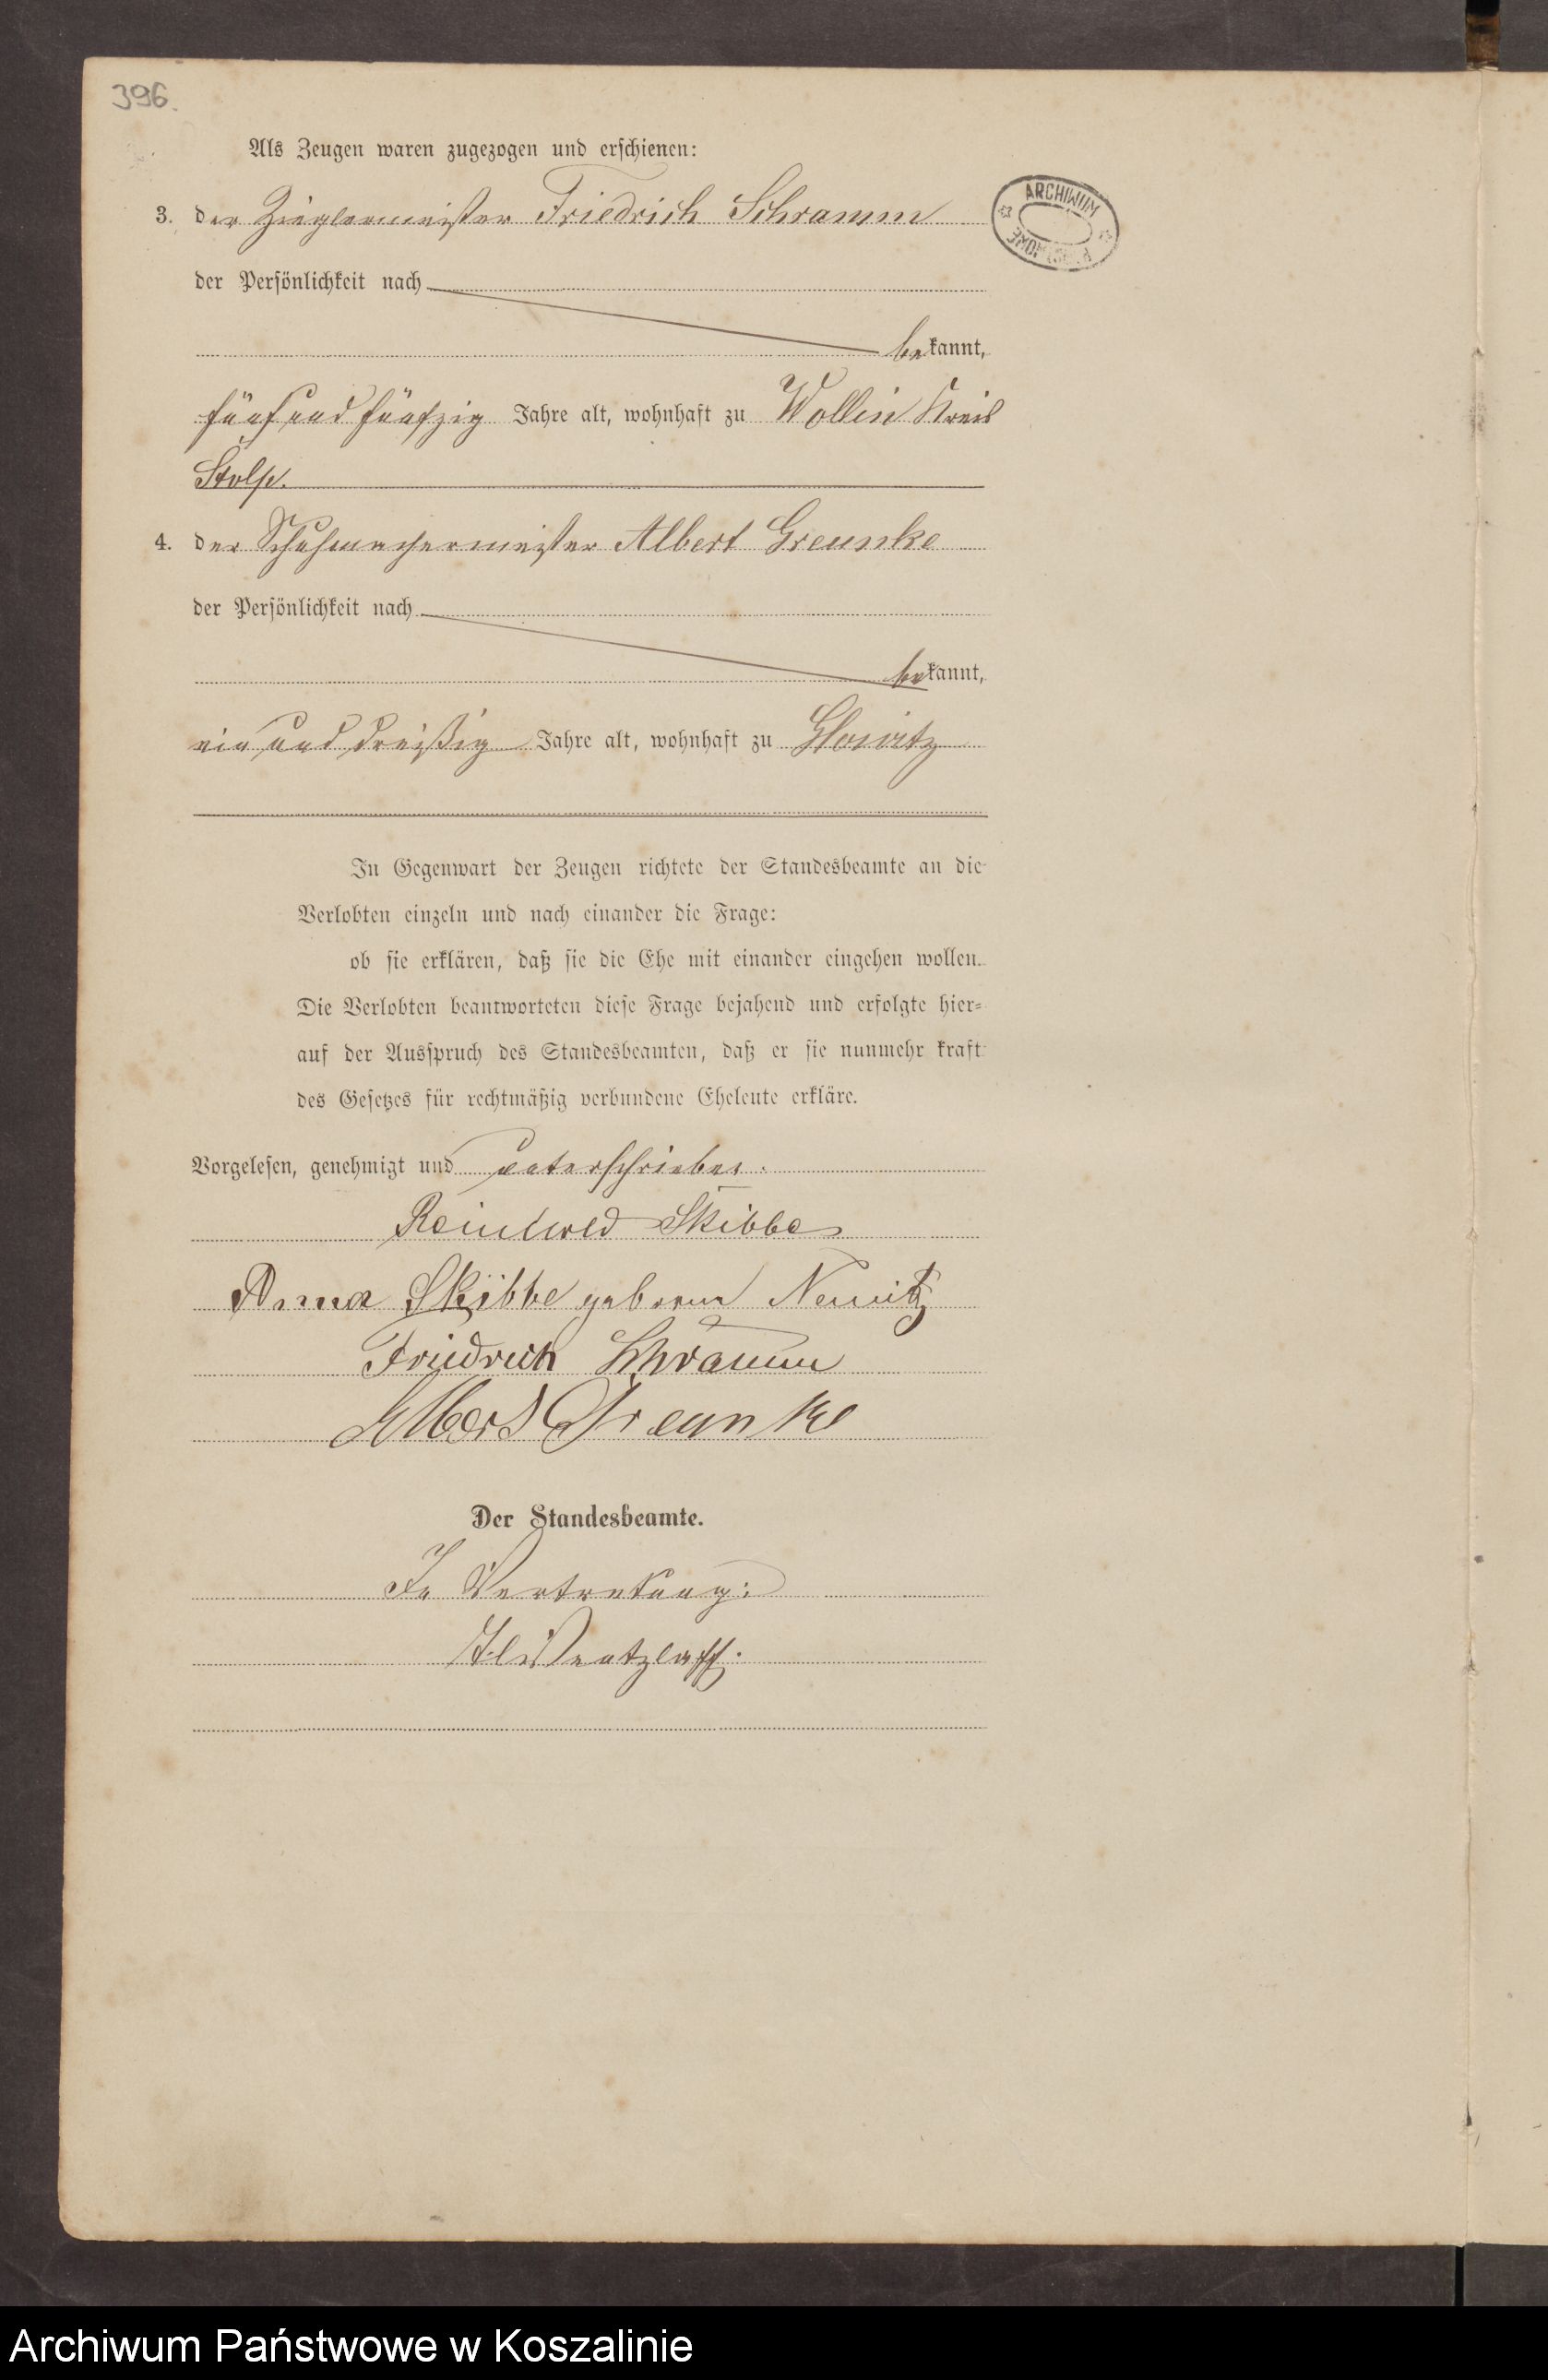 396.
Als Zeugen waren zugezogen und erschienen:
3. der Zieglermeister Friedrich Schramm
ARCHIWUM
der Persönlichkeit nach
bekannt,
fünf und fünfzig Jahre alt, wohnhaft zu Wollin Kreis
Stolp.
4. der Schuhmachermeister Albert Greunke
der Persönlichkeit nach
bekannt,
ein und dreißig Jahre alt, wohnhaft zu Glowitz
In Gegenwart der Zeugen richtete der Standesbeamte an die
Verlobten einzeln und nach einander die Frage:
ob sie erklären, daß sie die Ehe mit einander eingehen wollen.
Die Verlobten beantworteten diese Frage bejahend und erfolgte hier=
auf der Ausspruch des Standesbeamten, daß er sie nunmehr kraft
des Gesetzes für rechtmäßig verbundene Eheleute erkläre.
Vorgelesen, genehmigt und unterschrieben.
Reinhold Skibbe
Anna Skibbe geborene Nemitz
Friedrich Schramm
Albert Greunke
Der Standesbeamte.
In Vertretung:
Archiwum Państwowe w Koszalinie